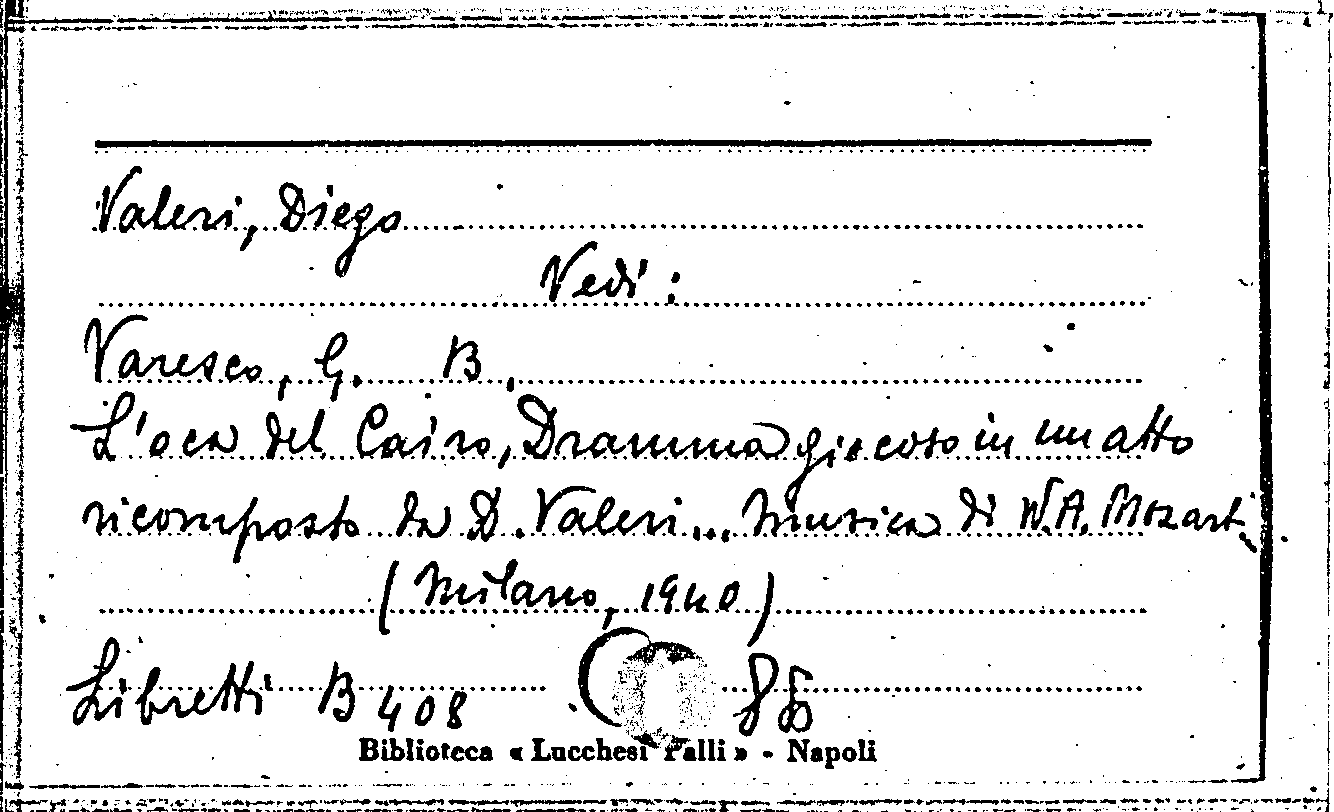 Valeri, Diego
Vedi:
Varesco, G. B.
L'oca del Cairo, Dramma giocoso in un atto
ricomposto da D. Valeri... Musica di W.A. Mozart.
(Milano, 1940)
Libretti B 408
Biblioteca « Lucchesi Palli » - Napoli